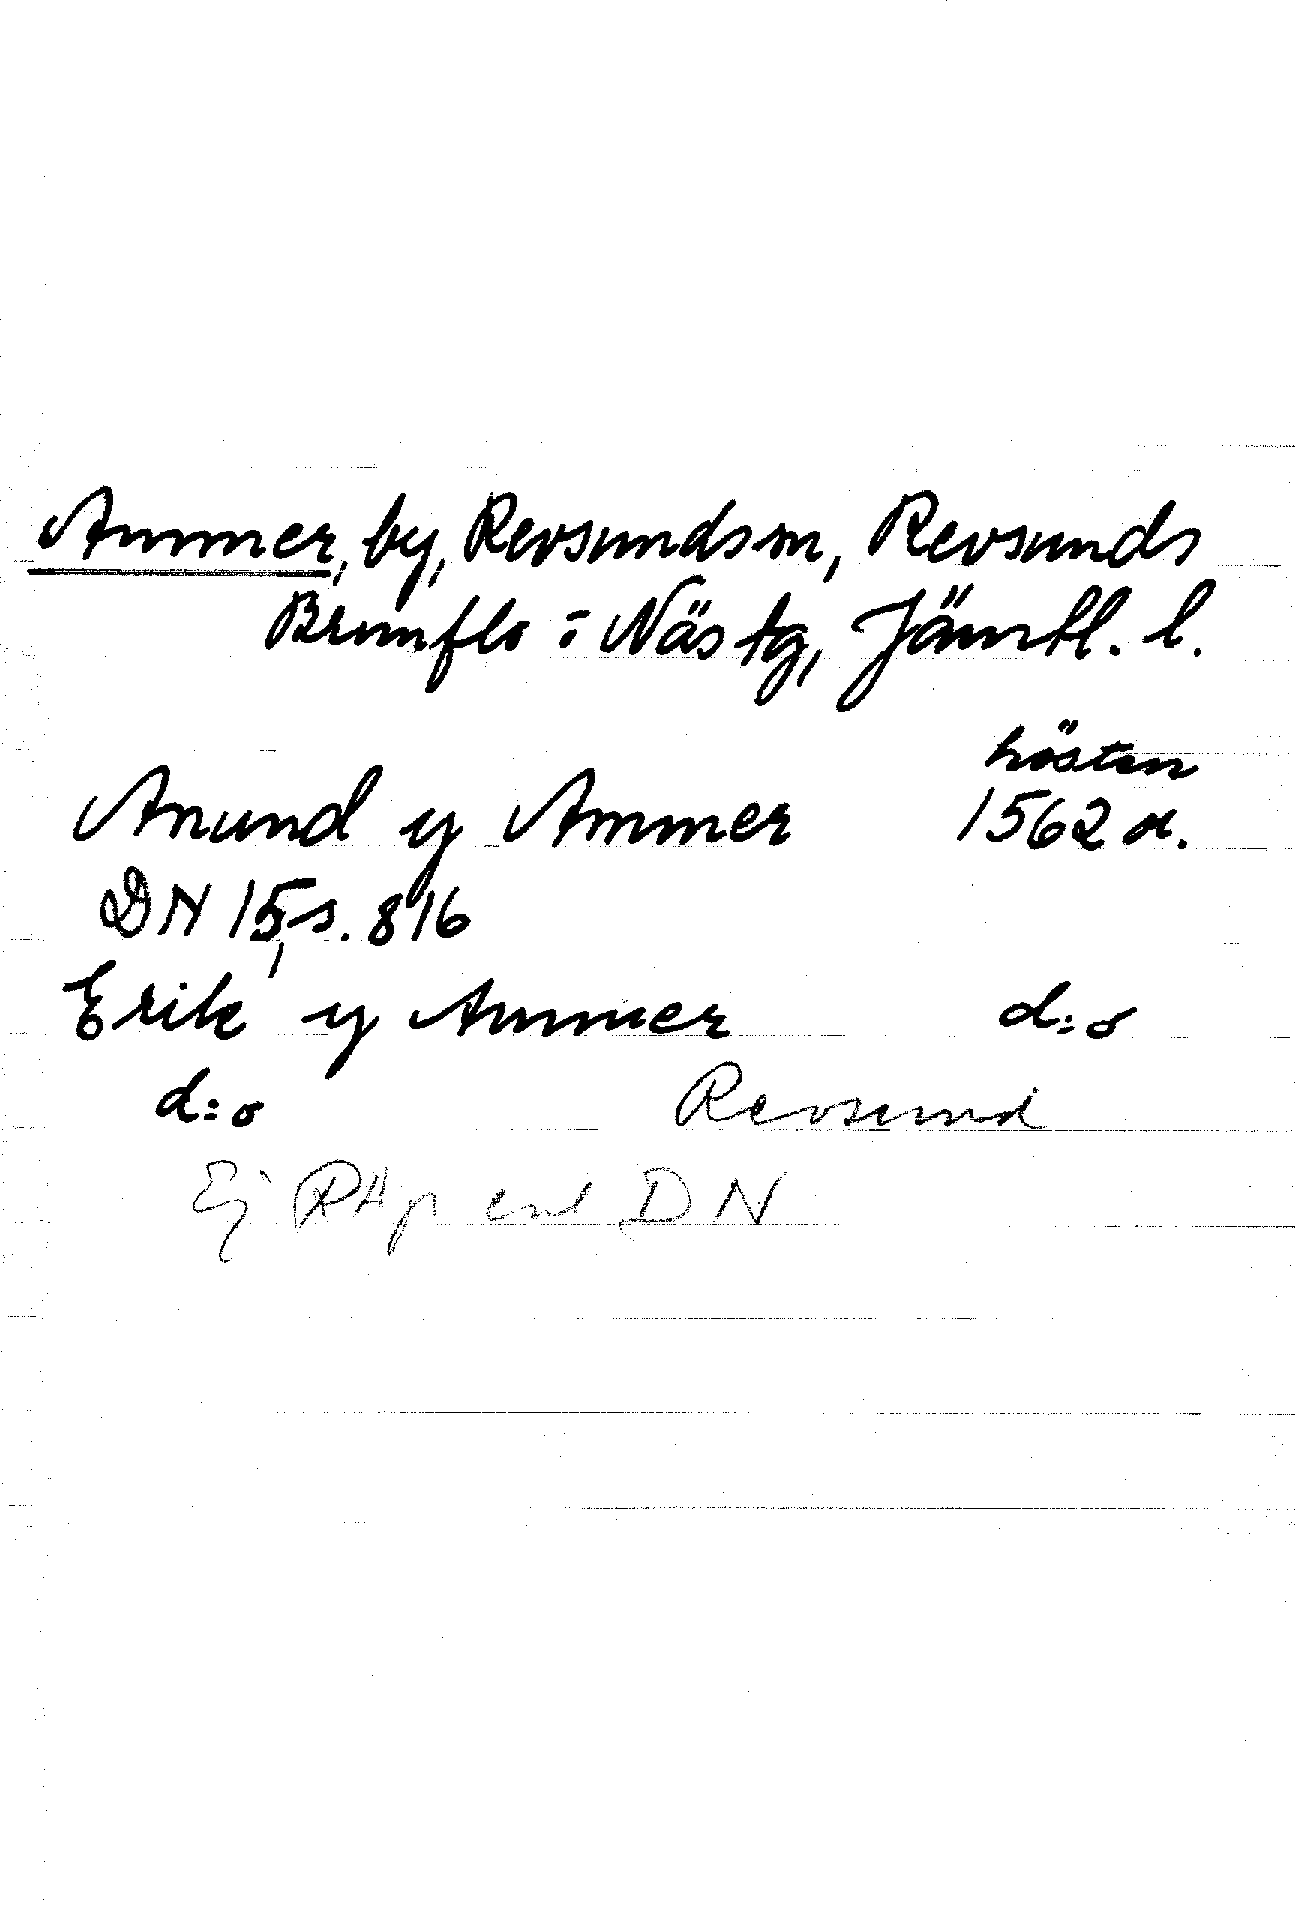 Ammer, by, Revsunds sn, Revsunds
Brunflo o Näs tg, Jämtl. l.
hösten
Anund y Ammer 1562 or.
DN 15, s. 816
Erik y Ammer d:o
d:o Revsund
Ej RAp enl DN